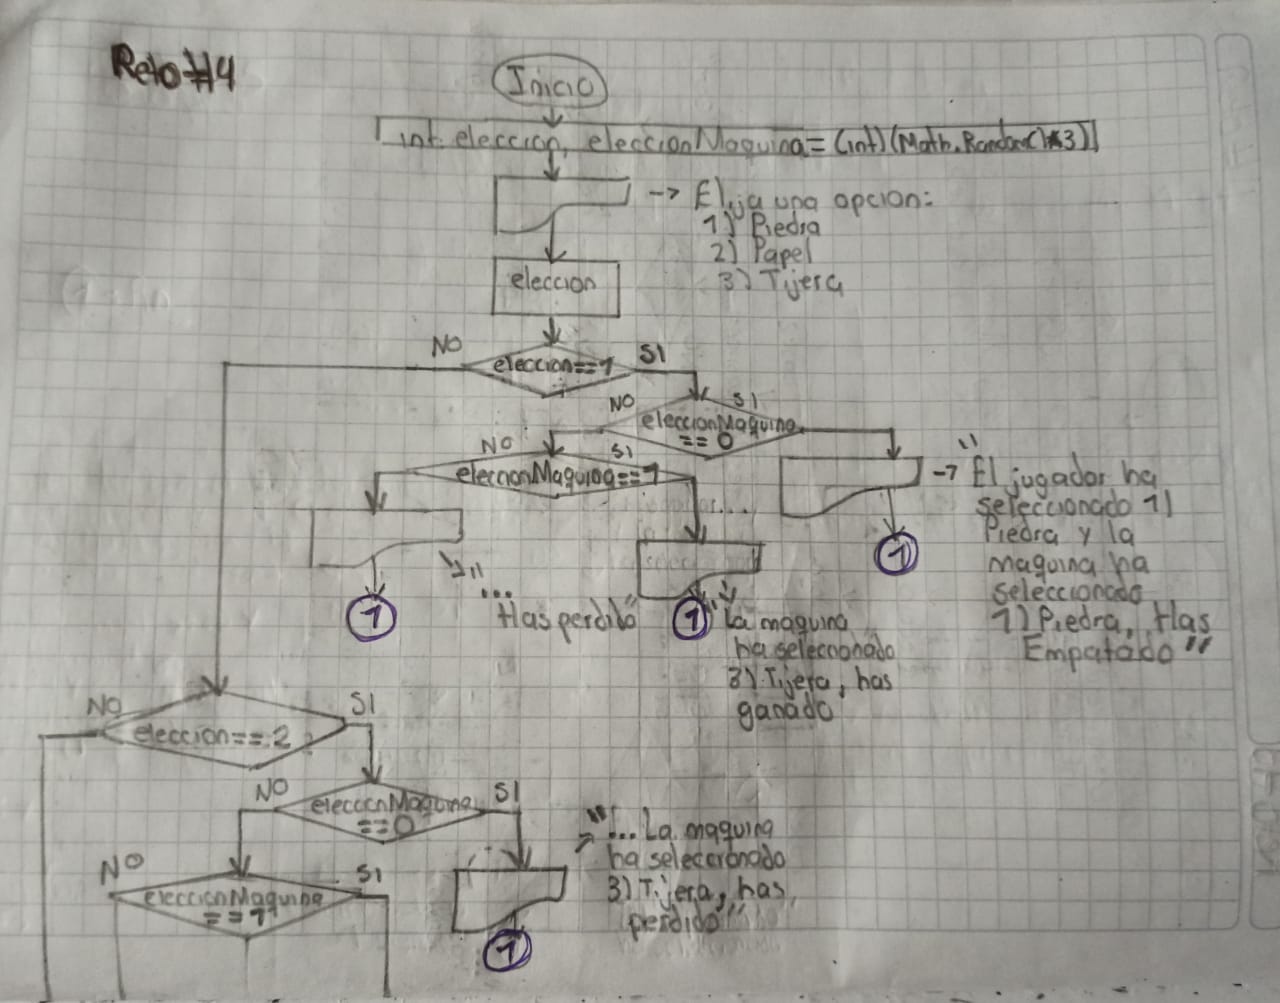 Reto #4
Inicio
int eleccion, eleccionMaquina = (int)(Math.Random()*3)
→ Elija una opcion:
1) Piedra
2) Papel
3) Tijera
eleccion
NO
eleccion==1
SI
NO
eleccionMaquina
== 0
SI
NO
eleccionMaquina==1
SI
→ "El jugador ha
seleccionado 1)
Piedra y la
maquina ha
seleccionado
1) Piedra, Has
Empatado"
1
"...
Has perdido"
1
1
"La maquina
ha seleccionado
3) Tijera, has
ganado
NO
eleccion==2
SI
NO
eleccionMaquina
==0
SI
"... La maquina
ha seleccionado
3) Tijera, has
perdido"
NO
eleccionMaquina
==1
SI
1